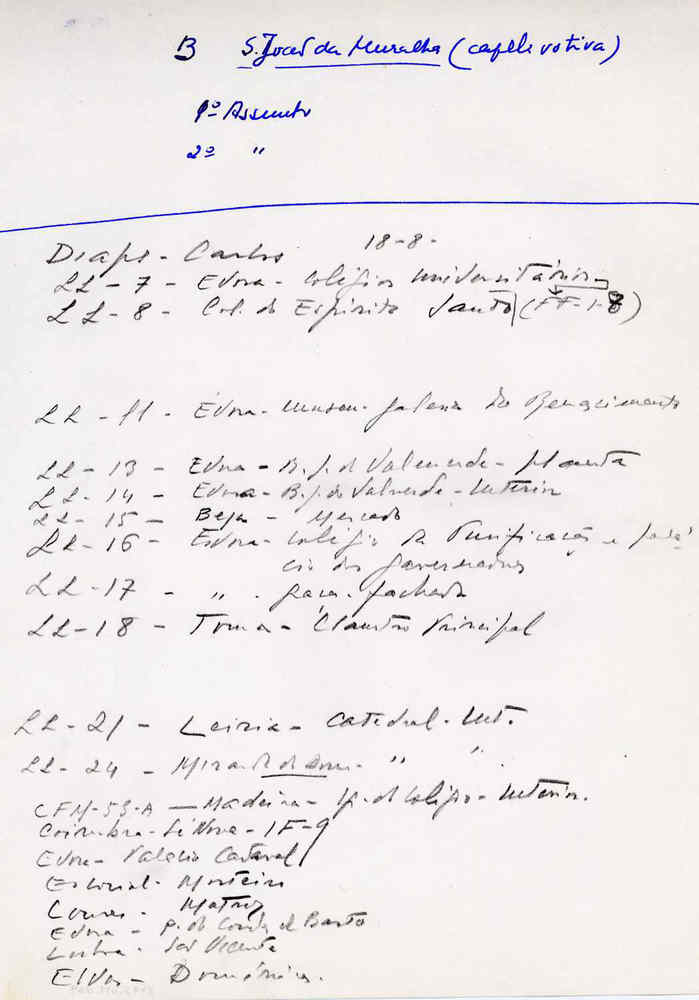 B S. João da Muralha (capela votiva)
1º Assunto
2º "
Diaps - Carlos 18-8-
LL-7 - Evora - Colégios Universitários
LL-8 - Col. do Espírito Santo (FF-1-8)
LL-11 - Évora - Museu - galeria do Renascimento
LL-13 - Evora - B. J. de Valverde - planta
LL-14 - Evora - B. J. de Valverde - Interior
LL-15 - Beja - Mercado
LL-16 - Evora - Colégio da Purificação e palá
cio dos governadores
LL-17 - " - fachada
LL-18 - Tomar - Claustro Principal
LL-21 - Leiria - Catedral - Int.
LL-24 - Mirand. do Dou. - " "
CFM-53-A - Madeira - Ig. do Colégio - Interior.
Coimbra - Sé Nova - IF-9
Evora - Palácio Cadaval
Escorial - Mosteiro
- Matriz
Evora - P. do Conde de Basto
Lisboa - São Vicente
Elvas - Domínicas.